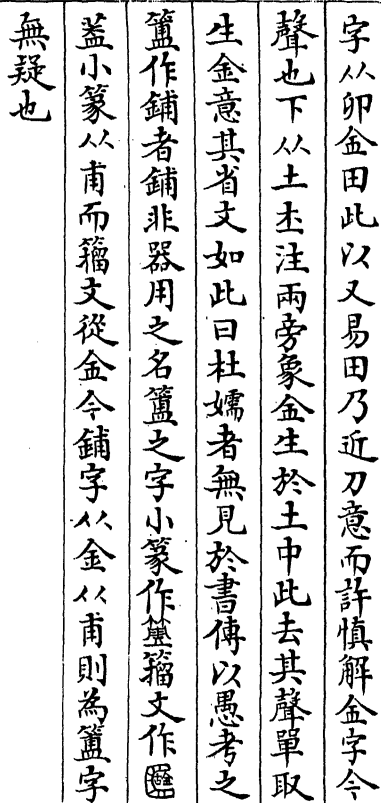 字从卯金田此以又易田乃近刀意而許慎解金字今
聲也下从土𡈽注兩旁象金生於土中此去其聲單取
生金意其省文如此曰杜嬬者無見於書傳以愚考之
簠作鋪者鋪非器用之名簠之字小篆作簠籀文作
葢小篆从甫而籀文從金今鋪字从金从甫則為簠字
無疑也